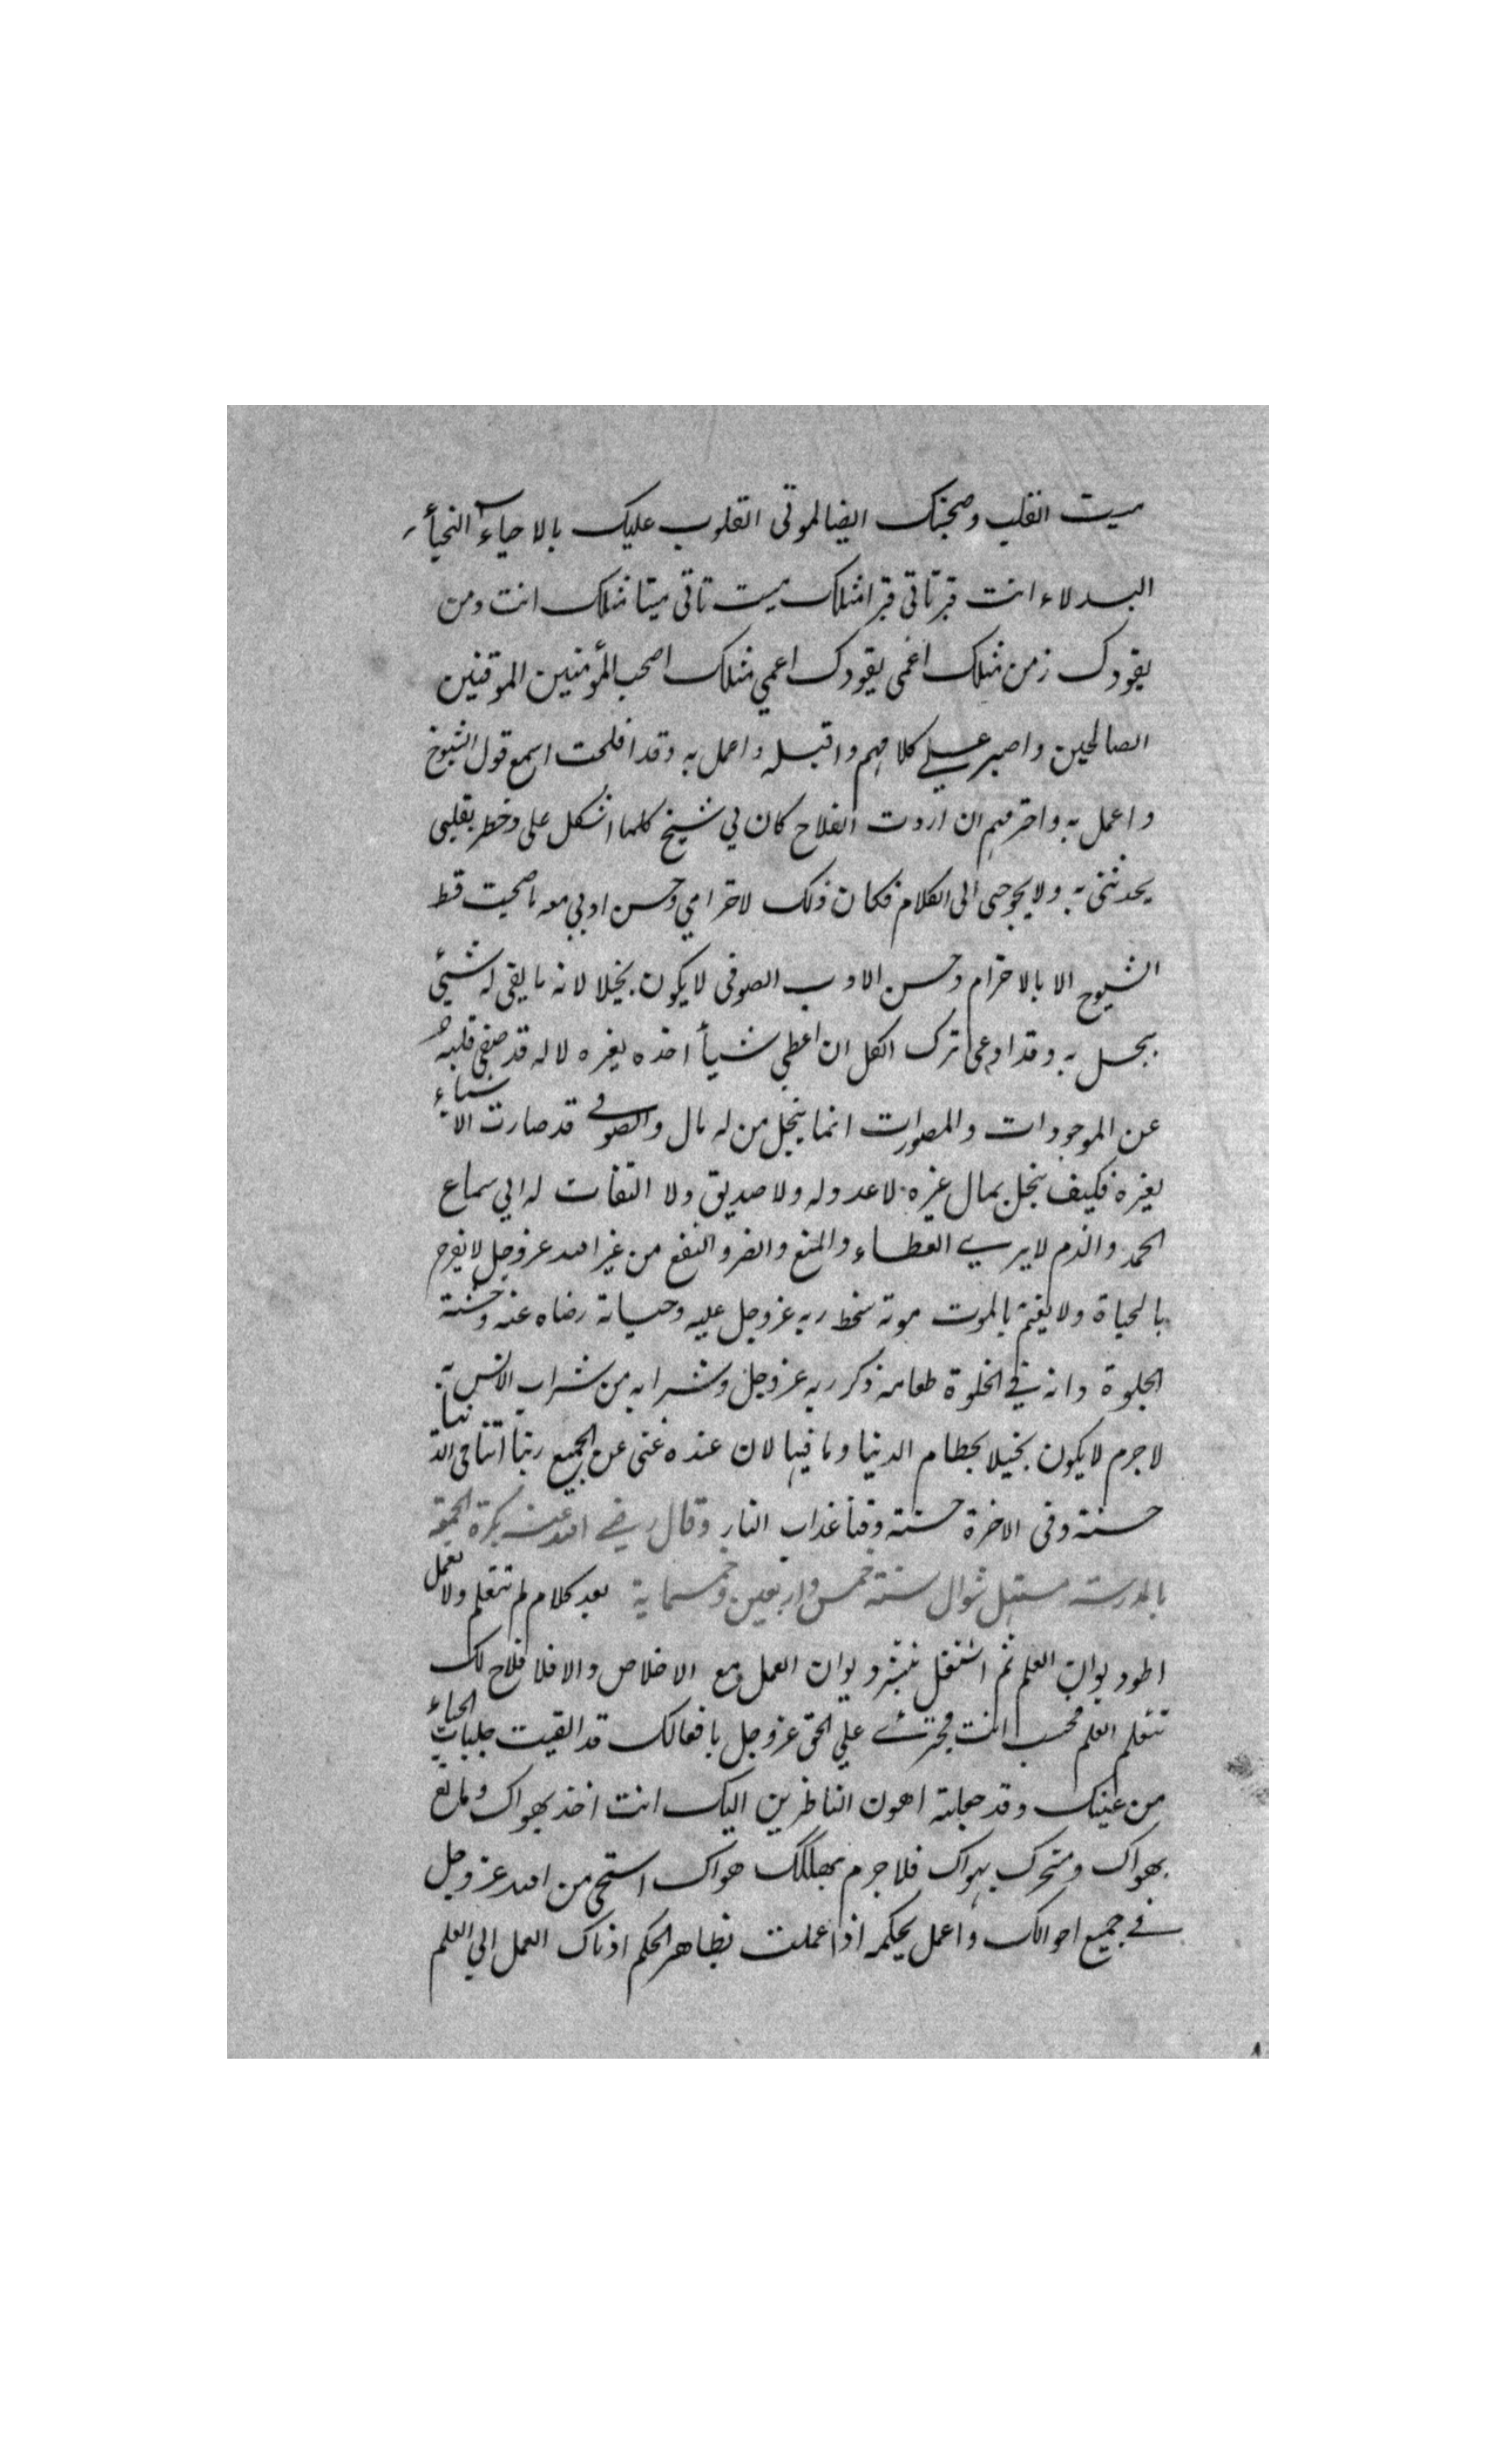 ميت القلب وصحبتك ايضا لموتى القلوب عليك بالاحياء النجبأ
البدلاء انت قبر تاتى قبرا مثلك ميت تاتى ميتا مثلك انت زمن
يقودك زمن مثلك اعمى يقودك اعمي مثلك اصحب المؤمنين الموقنين
الصالحين واصبر علي كلامهم واقبله واعمل به وقد افلحت اسمع قول الشيوخ
واعمل به واحترمهم ان اردت الفلاح كان لي شيخ كلما اشكل على وخطر بقلبى
يحدثنى به ولا يحوجنى الى الكلام فكان ذلك لاحترامي وحسن ادبي معه ما صحبت قط
الشيوخ الا بالاحترام وحسن الادب الصوفى لا يكون بخيلا لانه ما بقى له شيئ
يبخل به وقد ادعى ترك الكل ان اعطي شيأ اخذه لغيره لا له قد صفى قلبه
عن الموجودات والمصورات انما يبخل من له مال والصوفي قد صارت الاشياء
لغيره فكيف يبخل بمال غيره لا عدو له ولا صديق ولا التفات له الي سماع
الحمد والذم لا يري العطاء والمنع والضر والنفع من غير الله عز وجل لا يفرح
بالحياة ولا يغتم بالموت موته سخط ربه عز وجل عليه وحياته رضاه عنه وحشته
الجلوة وانه في الخلوة طعامه ذكر ربه عز وجل وشرابه من شراب الانس به
لا جرم لا يكون بخيلا بحطام الدنيا وما فيها لان عنده غنى عن الجميع ربنا اتنا فى الدنيا
حسنة وفى الاخرة حسنة وقنا عذاب النار وقال رضي الله عنه بكرة الجمعة
بالمدرسة مستهل شوال سنة خمس واربعين وخمسماية بعد كلام لم تتعلم ولا تعمل
اطو ديوان العلم ثم اشتغل بنشر ديوان العمل مع الاخلاص والا فلا فلاح لك
تتعلم العلم فحسب انت مجترئ علي الحق عز وجل بافعالك قد القيت جلباب الحياء
من عينك وقد جعلته اهون الناظرين اليك انت اخذ بهواك ومانع
بهواك ومتحرك بهواك فلا جرم يهلكك هواك استحى من الله عز وجل
في جميع احوالك واعمل بحكمه اذا عملت بظاهر الحكم ادناك العمل الي العلم